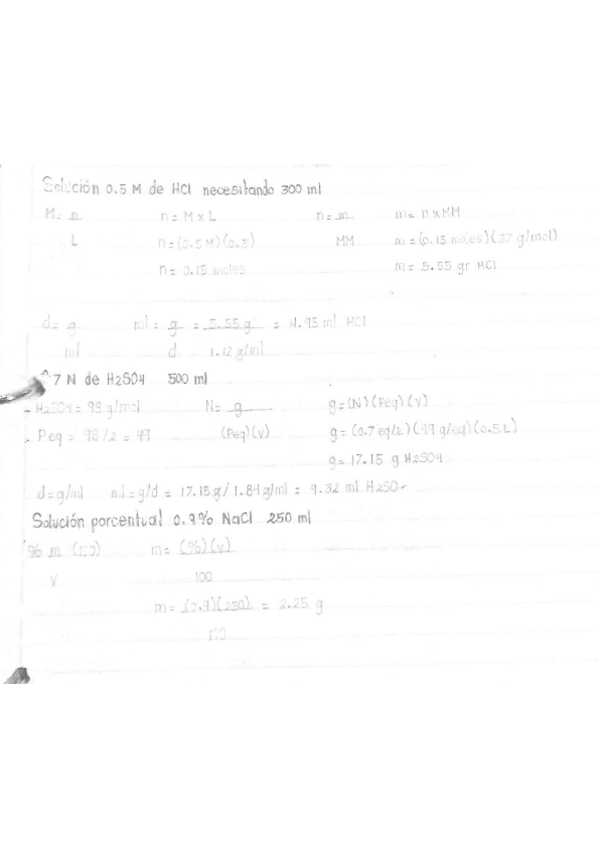 Solución 0.5 M de HCl necesitando 300 ml
M= n n = M x L n = m m = n x MM
L n = (0.5 M) (0.3) MM m = (0.15 moles) (37 g/mol)
n = 0.15 moles m = 5.55 gr HCl
d = g ml = g = 5.55 g = 4.95 ml HCl
ml d 1.12 g/ml
7 N de H2SO4 500 ml
H2SO4 = 98 g/mol N = g g = (N) (Peq) (V)
Peq = 98/2 = 49 (Peq) (V) g = (0.7 eq/L) (49 g/eq) (0.5 L)
g = 17.15 g H2SO4
d = g/ml ml = g/d = 17.15 g / 1.84 g/ml = 9.32 ml H2SO
Solución porcentual 0.9% NaCl 250 ml
% m (100) m = (%) (V)
V 100
m = (0.9) (250) = 2.25 g
100